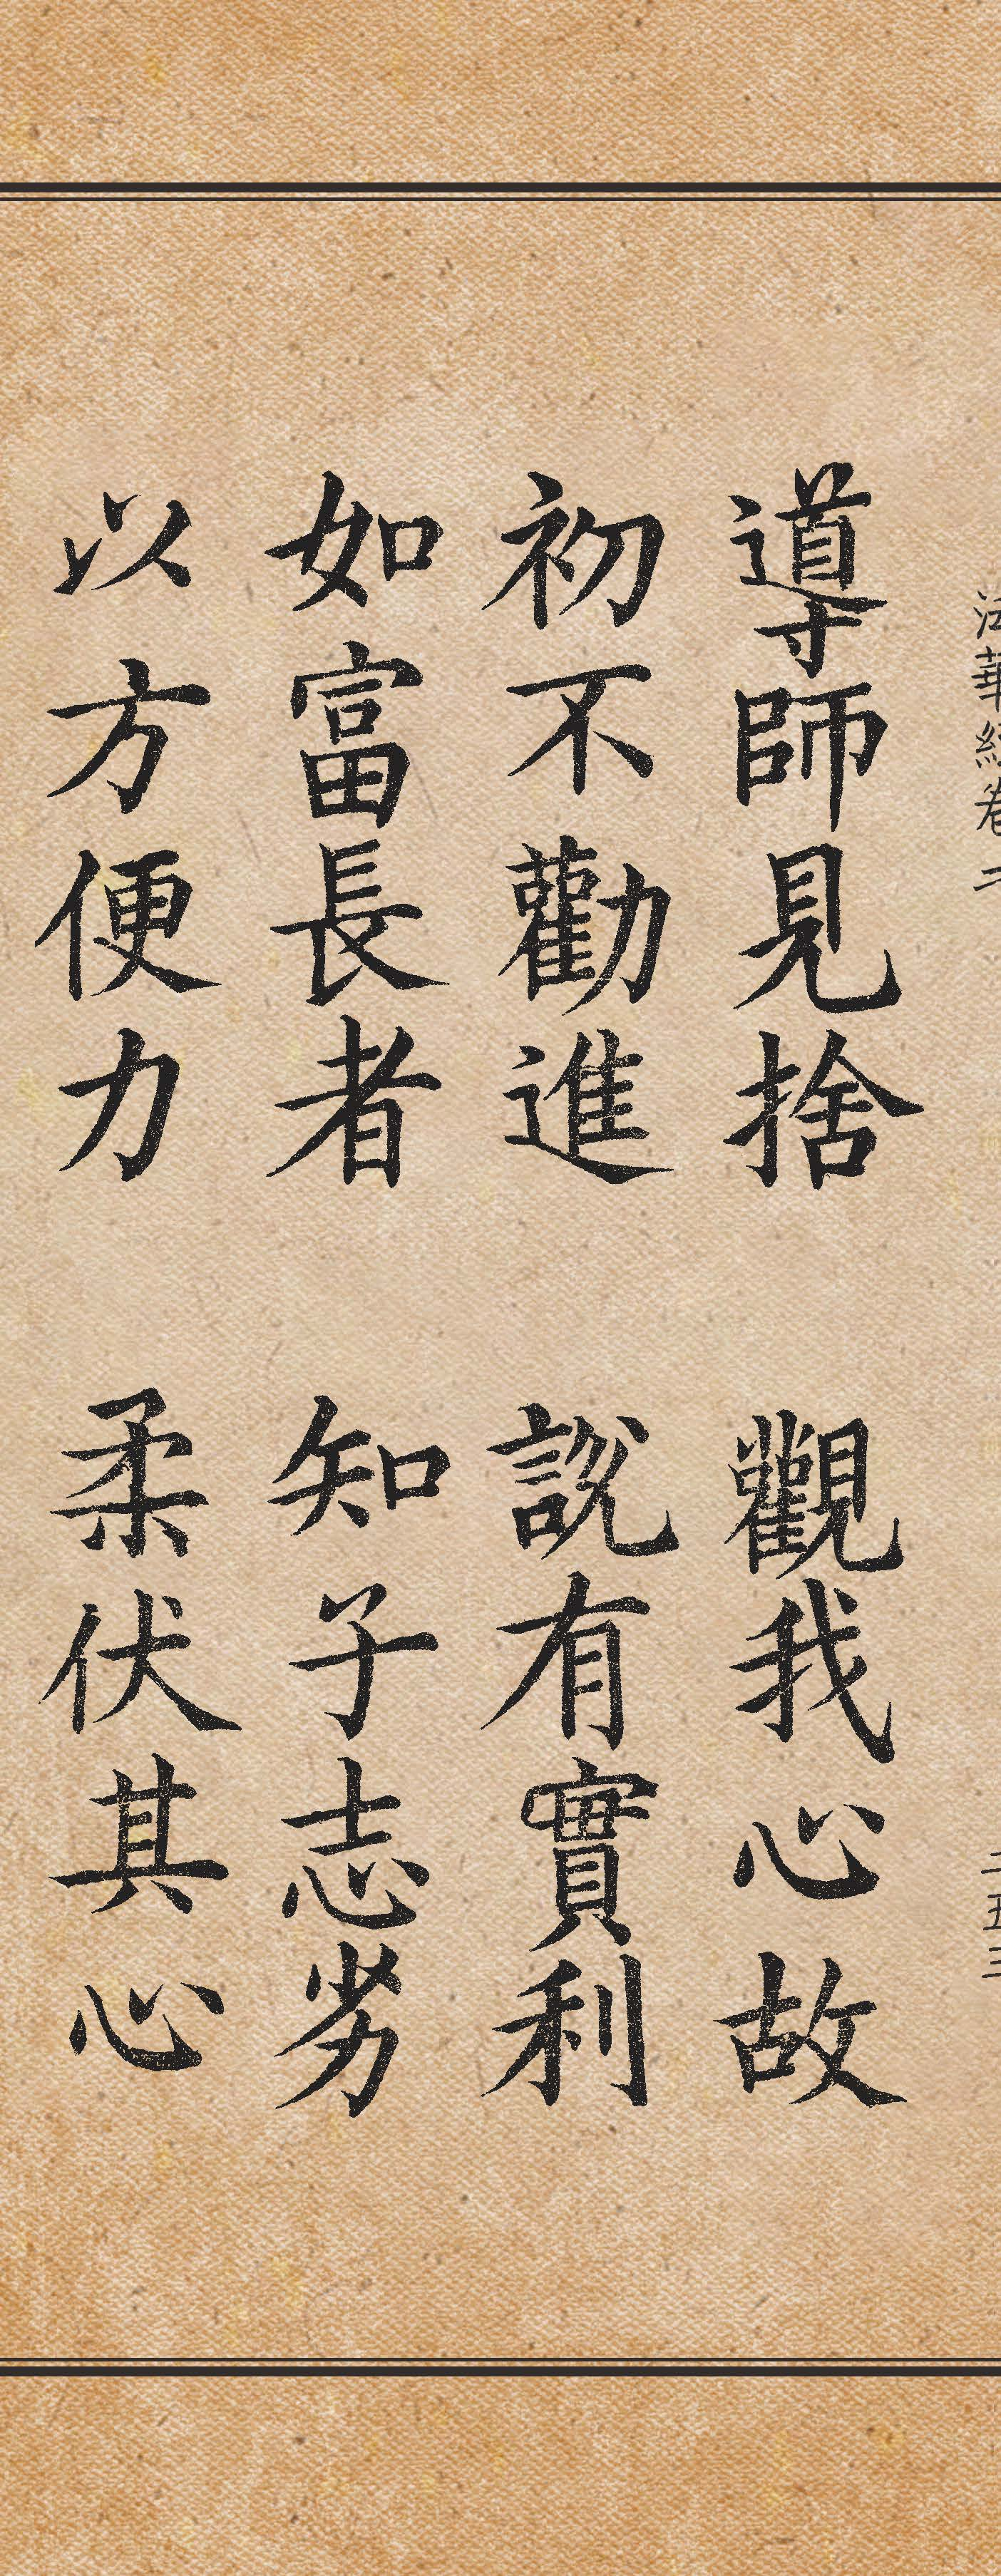 法華經卷二
二五三
導師見捨 觀我心故
初不勸進 說有實利
如富長者 知子志劣
以方便力 柔伏其心